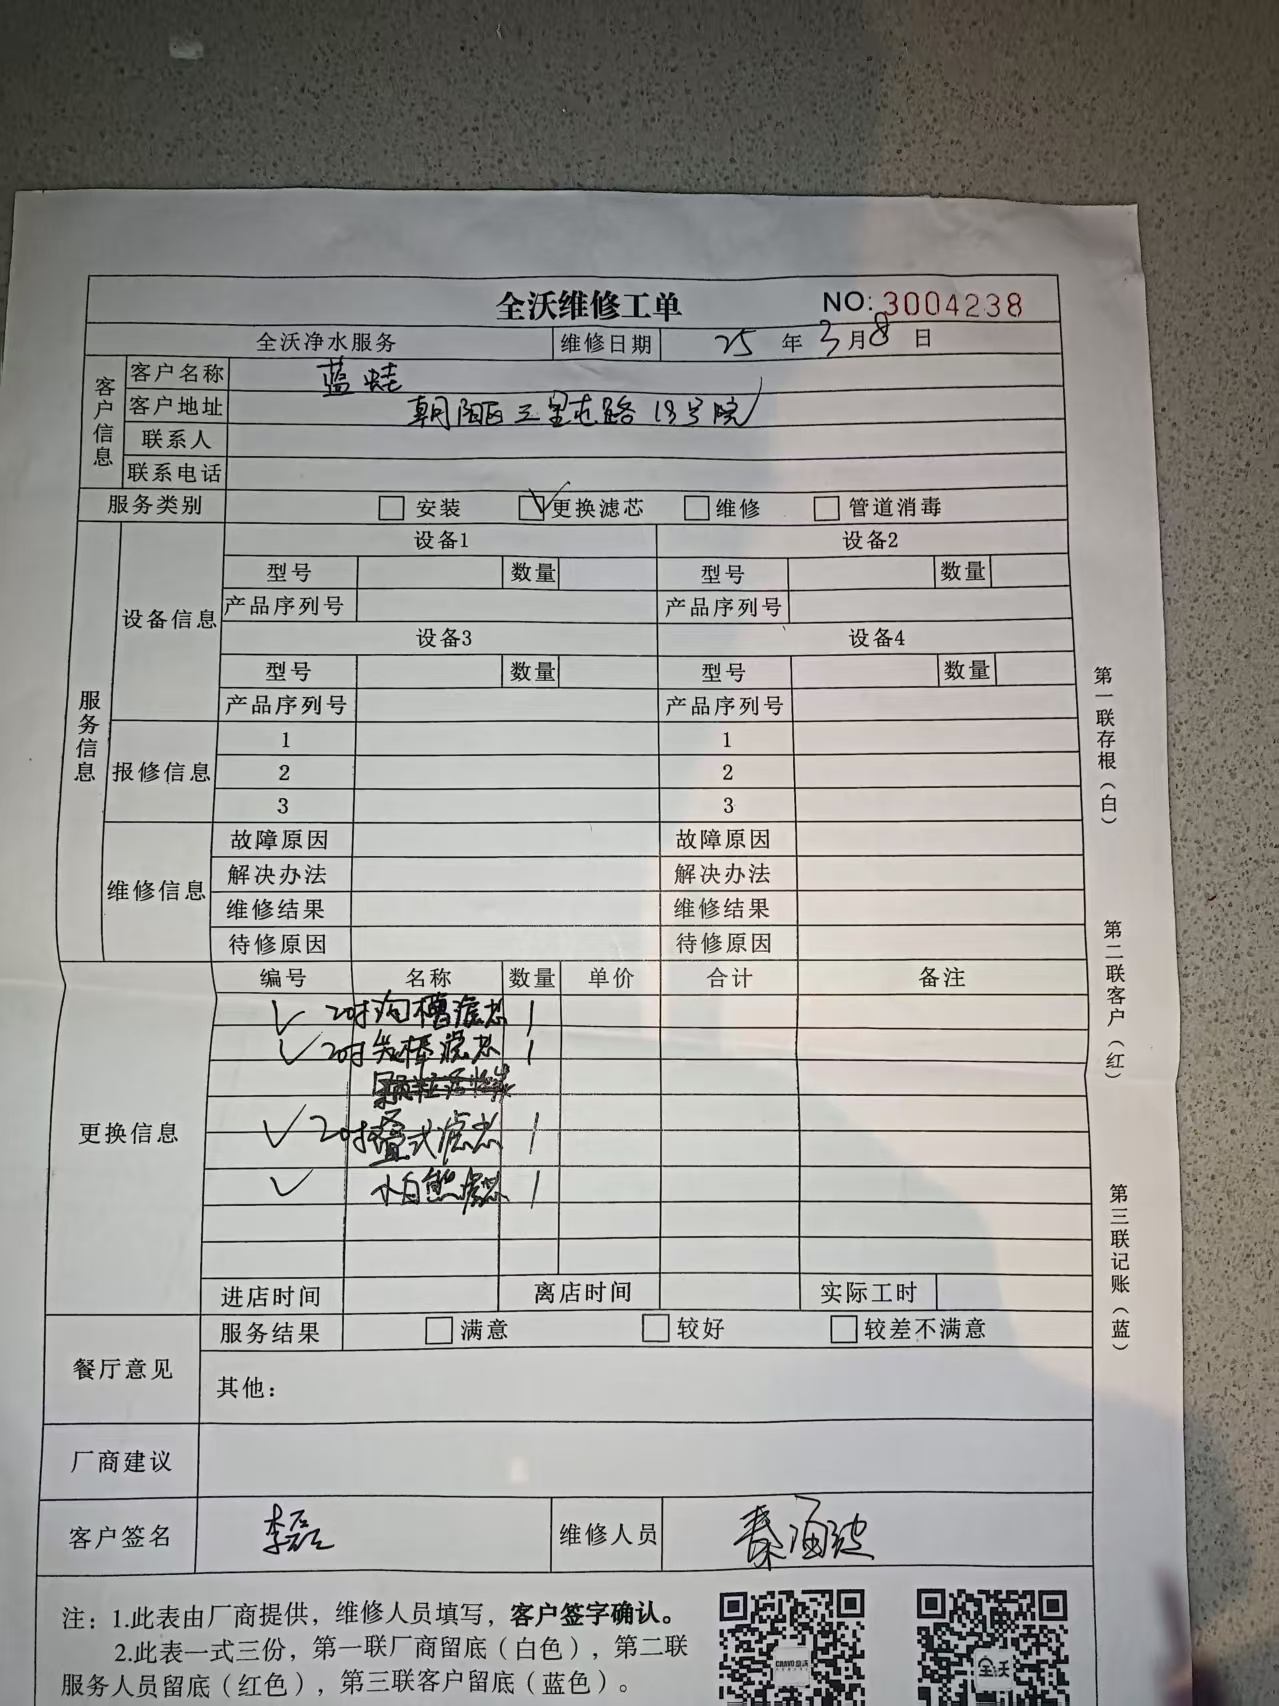 全沃维修工单 NO:3004238
全沃净水服务 维修日期 25 年 3 月 8 日
客户信息
客户名称 蓝蛙
客户地址 朝阳区三里屯路19号院
联系人
联系电话
服务类别 安装 更换滤芯 维修 管道消毒
服务信息
设备信息
设备1 设备2
型号 数量 型号 数量
产品序列号 产品序列号
设备3 设备4
型号 数量 型号 数量
产品序列号 产品序列号
报修信息
1 1
2 2
3 3
维修信息
故障原因 故障原因
解决办法 解决办法
维修结果 维修结果
待修原因 待修原因
更换信息
编号 名称 数量 单价 合计 备注
✓ 20寸沟槽滤芯 1
✓ 20寸炭棒滤芯 1
✓ 20寸叠式滤芯 1
✓ 小白熊滤芯 1
进店时间 离店时间 实际工时
餐厅意见
服务结果 满意 较好 较差不满意
其他：
厂商建议
客户签名 李磊 维修人员 秦涌波
注：1.此表由厂商提供，维修人员填写，客户签字确认。
2.此表一式三份，第一联厂商留底（白色），第二联
服务人员留底（红色），第三联客户留底（蓝色）。
全沃
第一联存根（白）
第二联客户（红）
第三联记账（蓝）